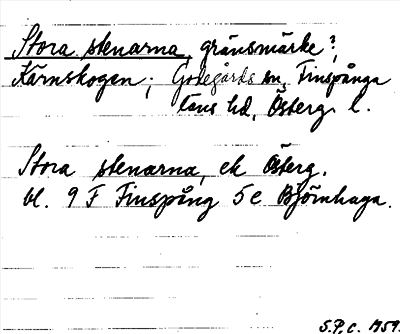 Stora stenarna, gränsmärke?,
Kärnskogen; Godegårds sn, Finspånga
läns hd, Österg. l.
Stora stenarna, ek Österg.
bl. 9 F Finspång 5 e Björnhaga.
S.P.C. 1959.